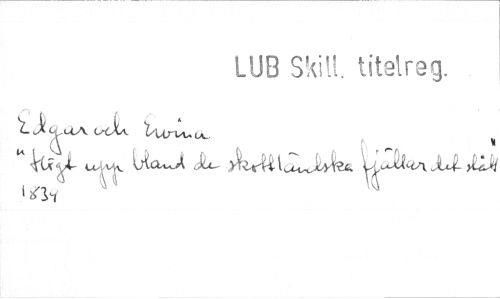 LUB Skill. titelreg.
Edgar och Ewina
"Högt upp bland de skottländska fjällar det stått"
1834